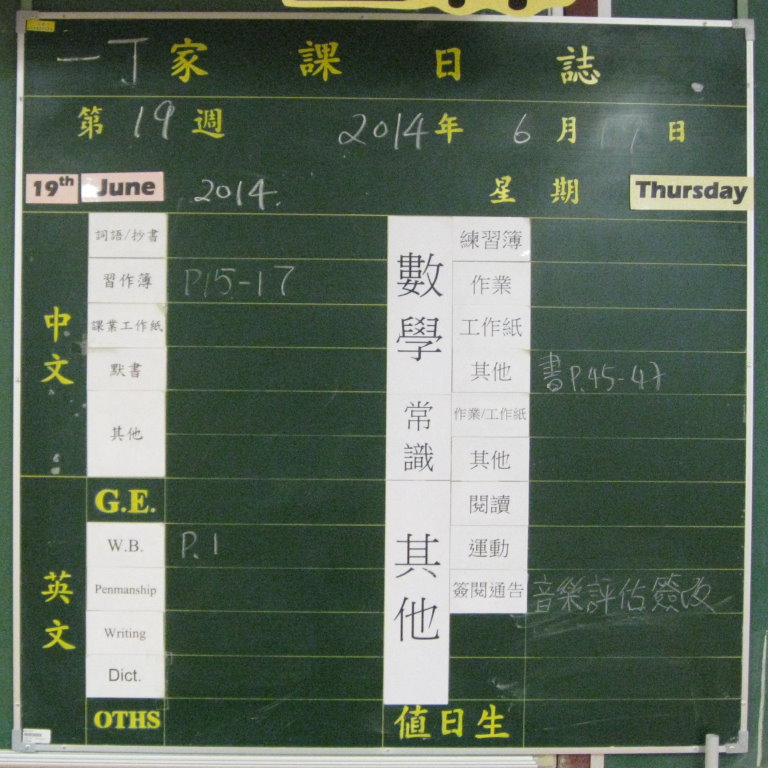 一丁家課日誌
第19週 2014年 6月 日
19th June 2014. 星期 Thursday
中文
詞語/抄書
習作簿 P.15-17
課業工作紙
默書
其他
英文
G.E.
W.B. P.1
Penmanship
Writing
Dict.
OTHS
數學
練習簿
作業
工作紙
其他 書P.45-47
常識
作業/工作紙
其他
其他
閱讀
運動
簽閱通告 音樂評估簽改
值日生